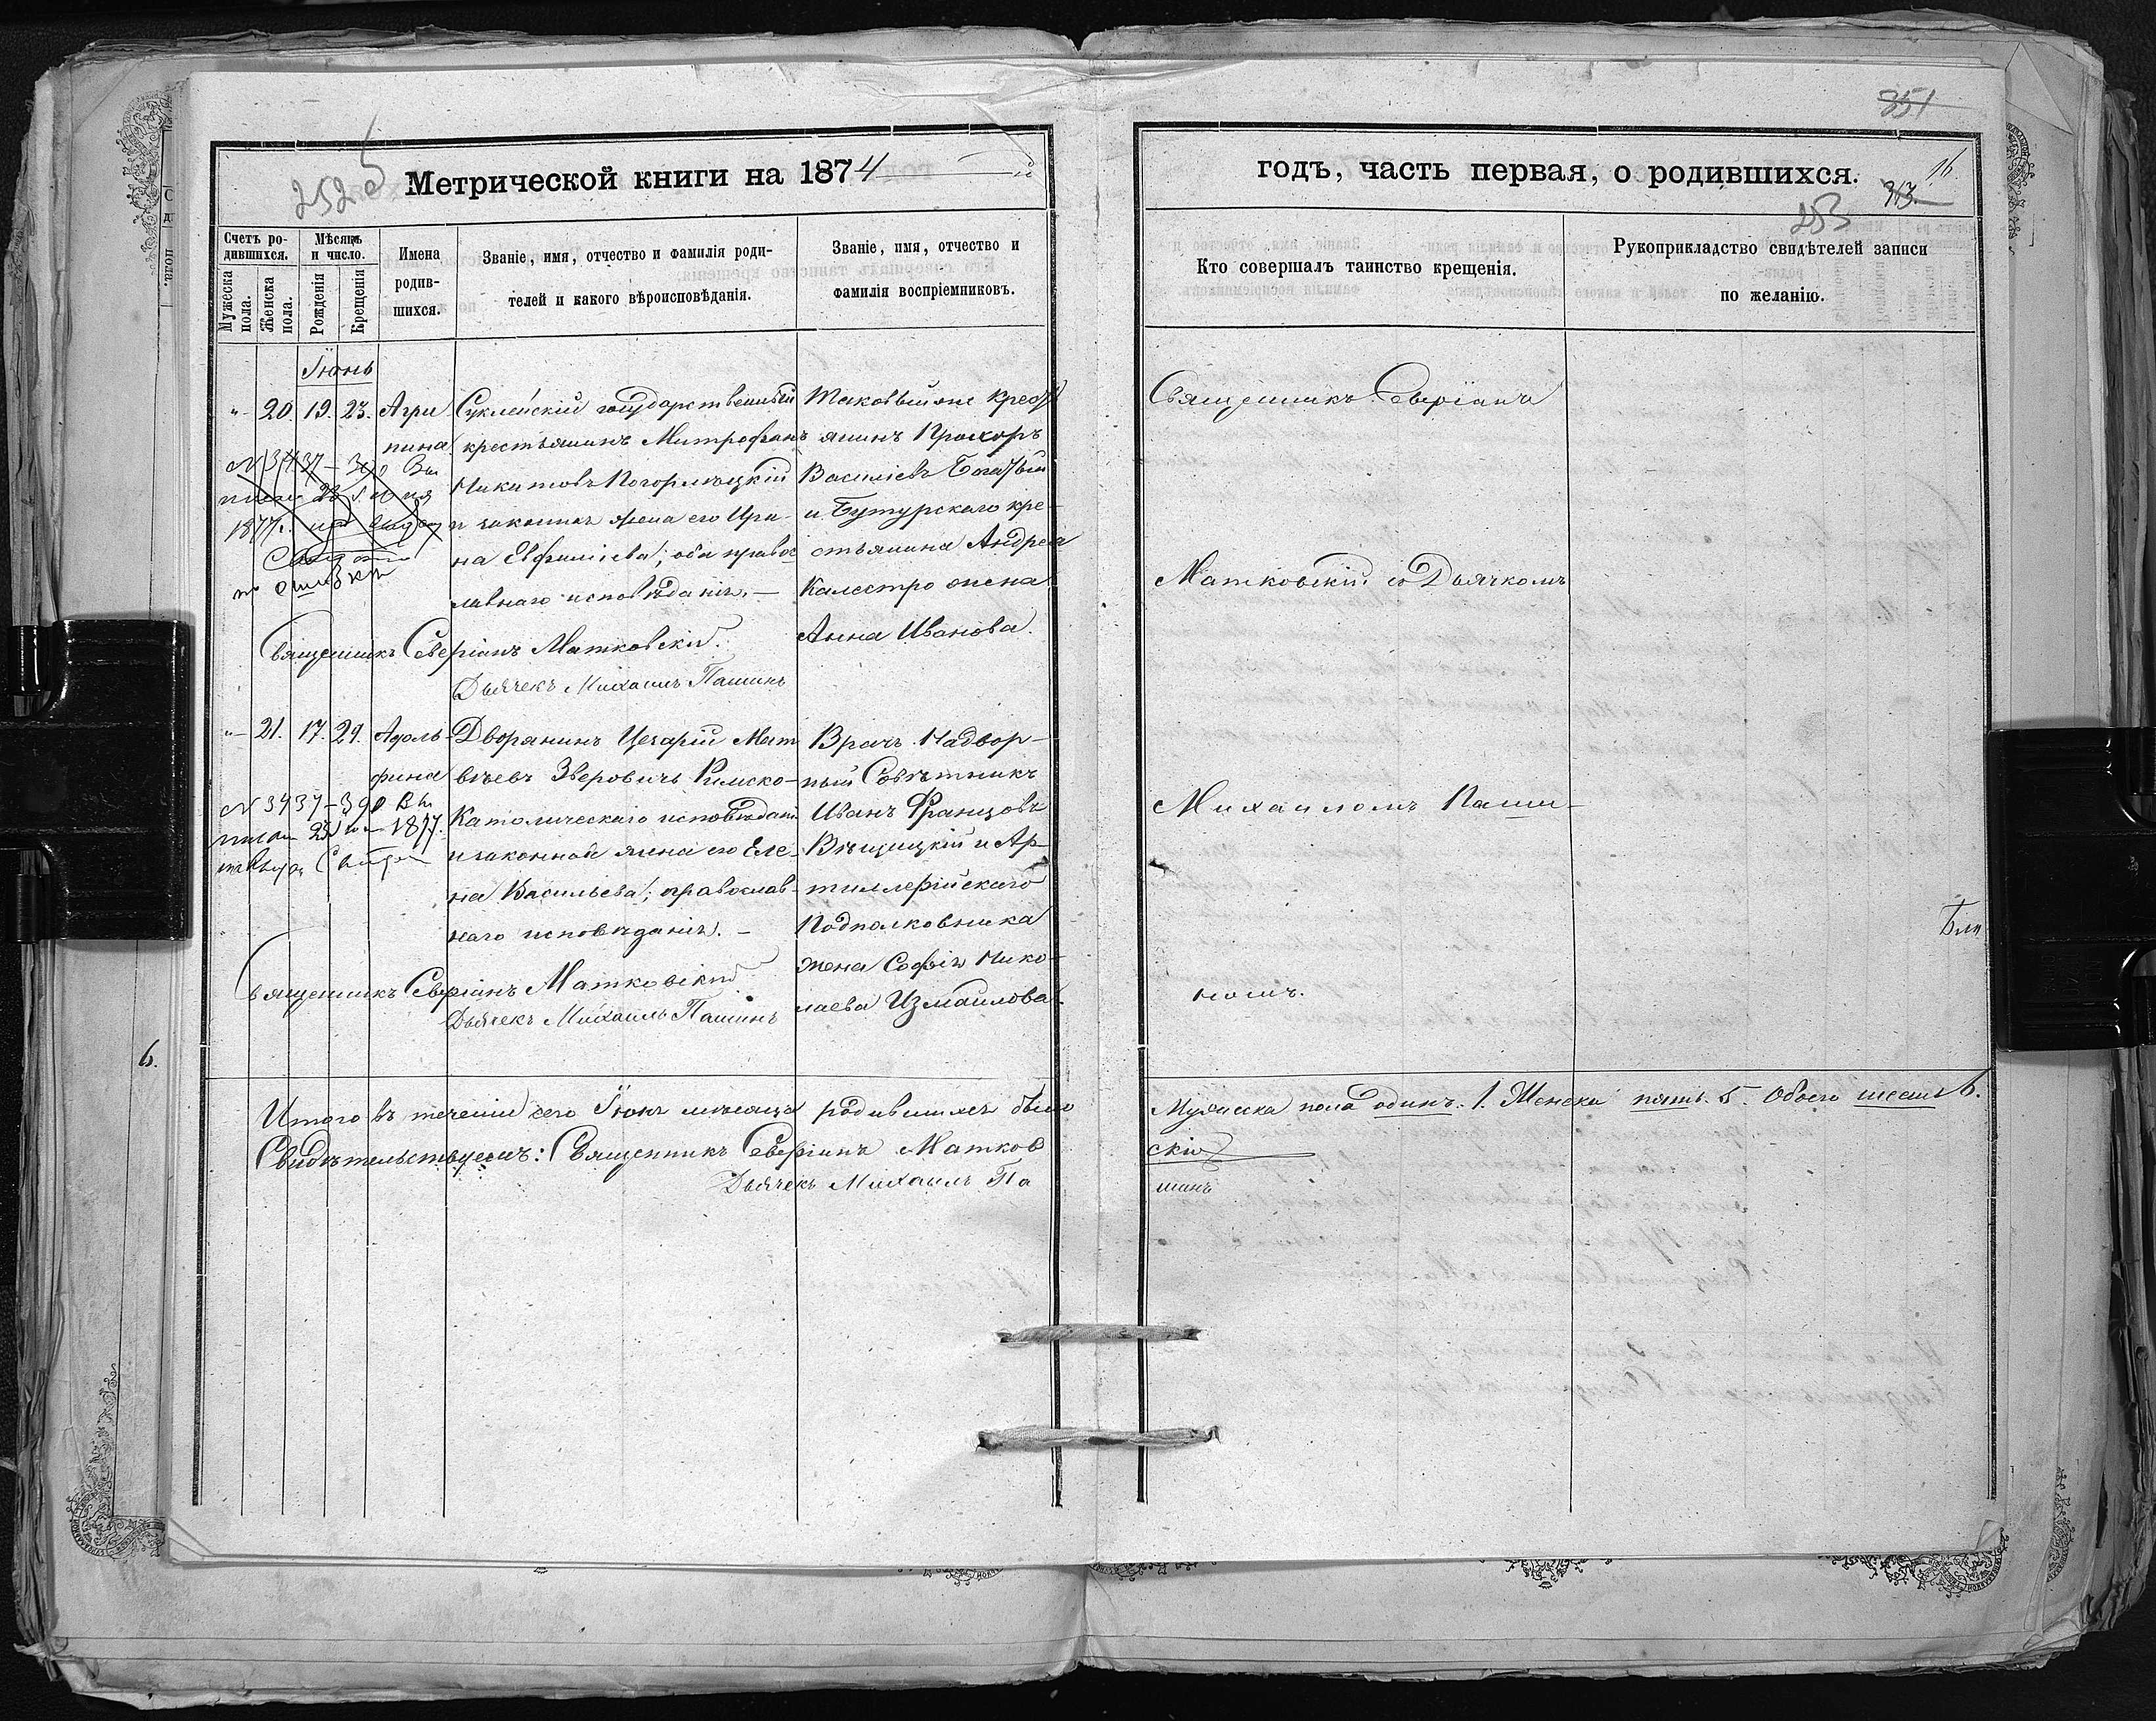 851
252
Метрической книги на 1874
Счетъ ро-
дившихся.
Мужеска
пола.
Женска
пола.
Мѣсяцъ
и число.
Рожденія
Крещенія
Имена
родив-
шихся.
Званіе, имя, отчество и фамилія роди-
телей и какого вѣроисповѣданія.
Званіе, имя, отчество и
фамилія воспріемниковъ.
Іюнь
"
20.
19.
23.
Агри
пина
Суклейскій государственный
крестьянинъ Митрофанъ
Никитовъ Погорлѣцкій
и законная жена его Ири-
на Евфиміева; оба правос
лавнаго исповѣданія. —
Таковый же крест
янинъ Прохоръ
Василіевъ Богатый
и Бутурскаго кре-
стьянина Андрея
Калестро жена
Анна Иванова.
N 3437 – 390 Вы
писи 28 Іюня
1877г.
по ошибкѣ
Священникъ Северіанъ Матковскій.
Дьячекъ Михаилъ Пашинъ
"
21.
17.
29.
Адоль-
фина
Дворянинъ Цезарій Мат
вѣевъ Зверовичъ Римско-
Католическаго исповѣдані
и законная жена его Еле-
на Васильева; православ-
наго исповѣданія. —
Врачъ Надвор-
ный Совѣтникъ
Иванъ Францовъ
Вѣщицкій и Ар-
тиллерійскаго
Подполковника
жена Софія Нико-
лаева Измаилова.
N 3437 – 390 Вы
писи 28 Іюн 1877.
Священникъ Северіанъ Матковскій
Дьячекъ Михаилъ Пашинъ
Итого въ теченіи сего Іюня мѣсяца родившихся было
Свидѣтельствуемъ: Священникъ Северіанъ Матков
Дьячекъ Михаилъ Па
6.
годъ, часть первая, о родившихся.
16.
313.
253
Кто совершалъ таинство крещенія.
Рукоприкладство свидѣтелей записи
по желанію.
Священникъ Северіанъ
Матковскій съ Дьячкомъ
Михаиломъ Паши-
номъ.
Мужеска пола одинъ. 1. Женска пять. 5. Обоего шесть 6.
скій
шинъ